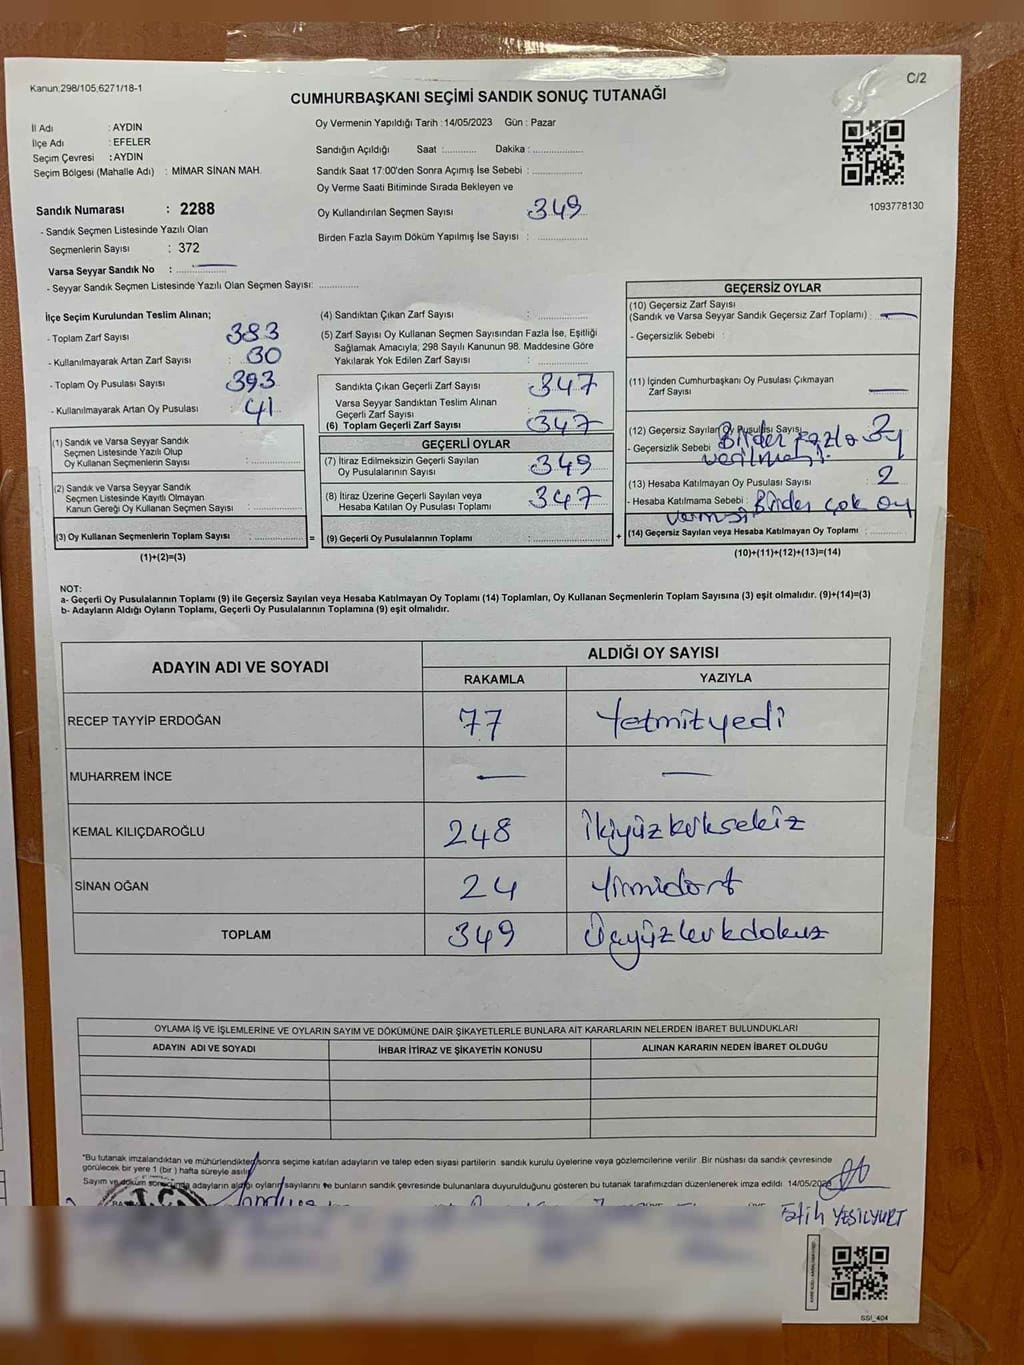 C/2
Kanun;298/105,6271/18-1
CUMHURBAŞKANI SEÇİMİ SANDIK SONUÇ TUTANAĞI
İl Adı : AYDIN
İlçe Adı : EFELER
Seçim Çevresi : AYDIN
Seçim Bölgesi (Mahalle Adı) : MİMAR SİNAN MAH.
Sandık Numarası : 2288
- Sandık Seçmen Listesinde Yazılı Olan
Seçmenlerin Sayısı : 372
Varsa Seyyar Sandık No :
- Seyyar Sandık Seçmen Listesinde Yazılı Olan Seçmen Sayısı:
Oy Vermenin Yapıldığı Tarih : 14/05/2023 Gün : Pazar
Sandığın Açıldığı Saat : Dakika :
Sandık Saat 17:00'den Sonra Açımış İse Sebebi :
Oy Verme Saati Bitiminde Sırada Bekleyen ve
Oy Kullandırılan Seçmen Sayısı 349
Birden Fazla Sayım Döküm Yapılmış İse Sayısı :
1093778130
İlçe Seçim Kurulundan Teslim Alınan;
- Toplam Zarf Sayısı 383
- Kullanılmayarak Artan Zarf Sayısı : 30
- Toplam Oy Pusulası Sayısı 393
- Kullanılmayarak Artan Oy Pusulası : 41
(1) Sandık ve Varsa Seyyar Sandık
Seçmen Listesinde Yazılı Olup
Oy Kullanan Seçmenlerin Sayısı :
(2) Sandık ve Varsa Seyyar Sandık
Seçmen Listesinde Kayıtlı Olmayan
Kanun Gereği Oy Kullanan Seçmen Sayısı :
(3) Oy Kullanan Seçmenlerin Toplam Sayısı : =
(1)+(2)=(3)
(4) Sandıktan Çıkan Zarf Sayısı :
(5) Zarf Sayısı Oy Kullanan Seçmen Sayısından Fazla İse, Eşitliği
Sağlamak Amacıyla; 298 Sayılı Kanunun 98. Maddesine Göre
Yakılarak Yok Edilen Zarf Sayısı :
Sandıkta Çıkan Geçerli Zarf Sayısı : 347
Varsa Seyyar Sandıktan Teslim Alınan
Geçerli Zarf Sayısı
(6) Toplam Geçerli Zarf Sayısı : 347
GEÇERLİ OYLAR
(7) İtiraz Edilmeksizin Geçerli Sayılan
Oy Pusulalarının Sayısı : 349
(8) İtiraz Üzerine Geçerli Sayılan veya
Hesaba Katılan Oy Pusulası Toplamı : 347
(9) Geçerli Oy Pusulalarının Toplamı : +
GEÇERSİZ OYLAR
(10) Geçersiz Zarf Sayısı
(Sandık ve Varsa Seyyar Sandık Geçersiz Zarf Toplamı) :
- Geçersizlik Sebebi :
(11) İçinden Cumhurbaşkanı Oy Pusulası Çıkmayan
Zarf Sayısı
(12) Geçersiz Sayılan Oy Pusulası Sayısı
- Geçersizlik Sebebi Birden fazla oy
verilmesi.
(13) Hesaba Katılmayan Oy Pusulası Sayısı : 2
- Hesaba Katılmama Sebebi : Birden çok oy
vermesi
(14) Geçersiz Sayılan veya Hesaba Katılmayan Oy Toplamı
(10)+(11)+(12)+(13)=(14)
NOT:
a- Geçerli Oy Pusulalarının Toplamı (9) ile Geçersiz Sayılan veya Hesaba Katılmayan Oy Toplamı (14) Toplamları, Oy Kullanan Seçmenlerin Toplam Sayısına (3) eşit olmalıdır. (9)+(14)=(3)
b- Adayların Aldığı Oyların Toplamı, Geçerli Oy Pusulalarının Toplamına (9) eşit olmalıdır.
ADAYIN ADI VE SOYADI ALDIĞI OY SAYISI
RAKAMLA YAZIYLA
RECEP TAYYİP ERDOĞAN 77 Yetmişyedi
MUHARREM İNCE
KEMAL KILIÇDAROĞLU 248 İkiyüzkırksekiz
SİNAN OĞAN 24 Yirmidört
TOPLAM 349 Üçyüzkırkdokuz
OYLAMA İŞ VE İŞLEMLERİNE VE OYLARIN SAYIM VE DÖKÜMÜNE DAİR ŞİKAYETLERLE BUNLARA AİT KARARLARIN NELERDEN İBARET BULUNDUKLARI
ADAYIN ADI VE SOYADI İHBAR İTİRAZ VE ŞİKAYETİN KONUSU ALINAN KARARIN NEDEN İBARET OLDUĞU
*Bu tutanak imzalandıktan ve mühürlendikten sonra seçime katılan adayların ve talep eden siyasi partilerin sandık kurulu üyelerine veya gözlemcilerine verilir. Bir nüshası da sandık çevresinde
görülecek bir yere 1 (bir ) hafta süreyle asılır.
Sayım ve döküm sonucunda adayların aldığı oyların sayılarını ve bunların sandık çevresinde bulunanlara duyurulduğunu gösteren bu tutanak tarafımızdan düzenlenerek imza edildi. 14/05/2023
Fatih YEŞİLYURT
SSI_404